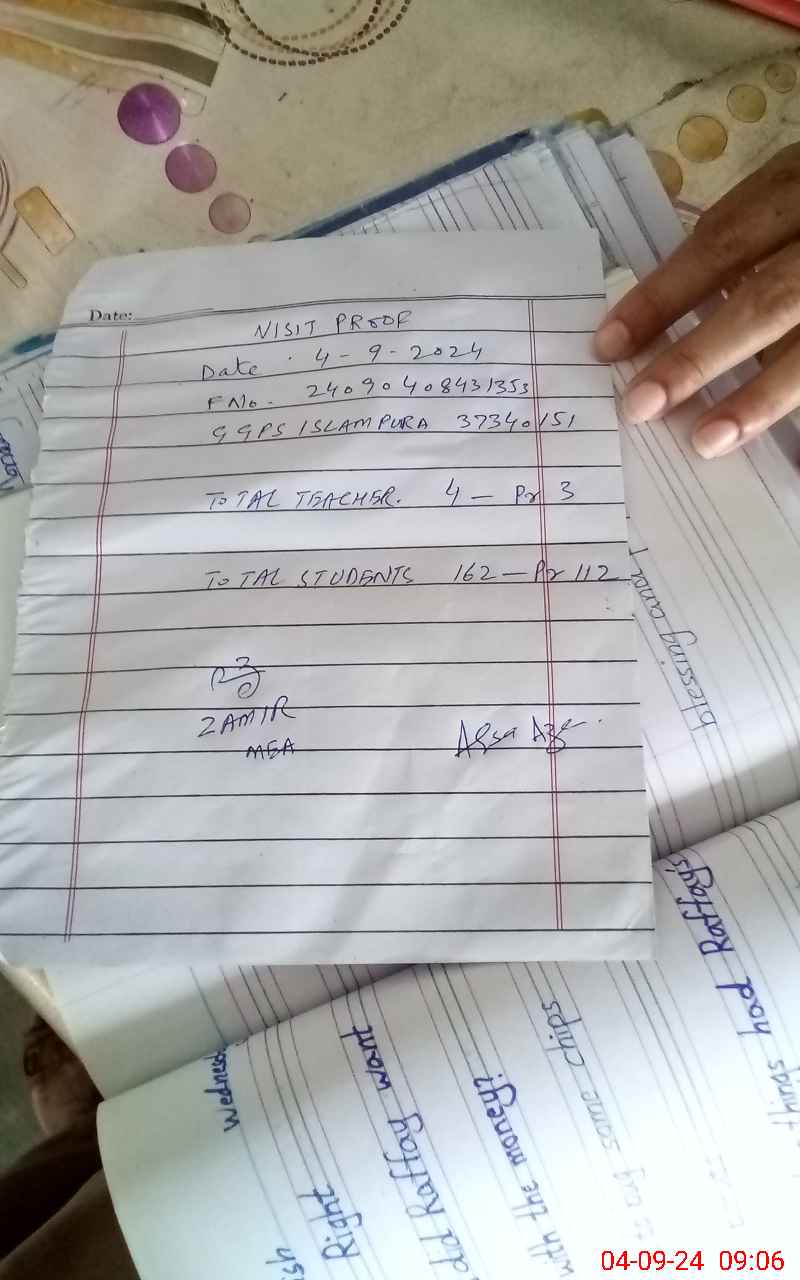 Date:
VISIT PROOF
Date . 4 - 9 - 2024
F No. - 24090408431353
GGPS ISLAMPURA 37340151
TOTAL TEACHER. 4 - Pr 3
TOTAL STUDENTS 162 - Pr 112
ZAMIR
MEA
blessing
Wednesd
Right
did Raffay want
with the money?
some chips
things had Raffay's
04-09-24 09:06